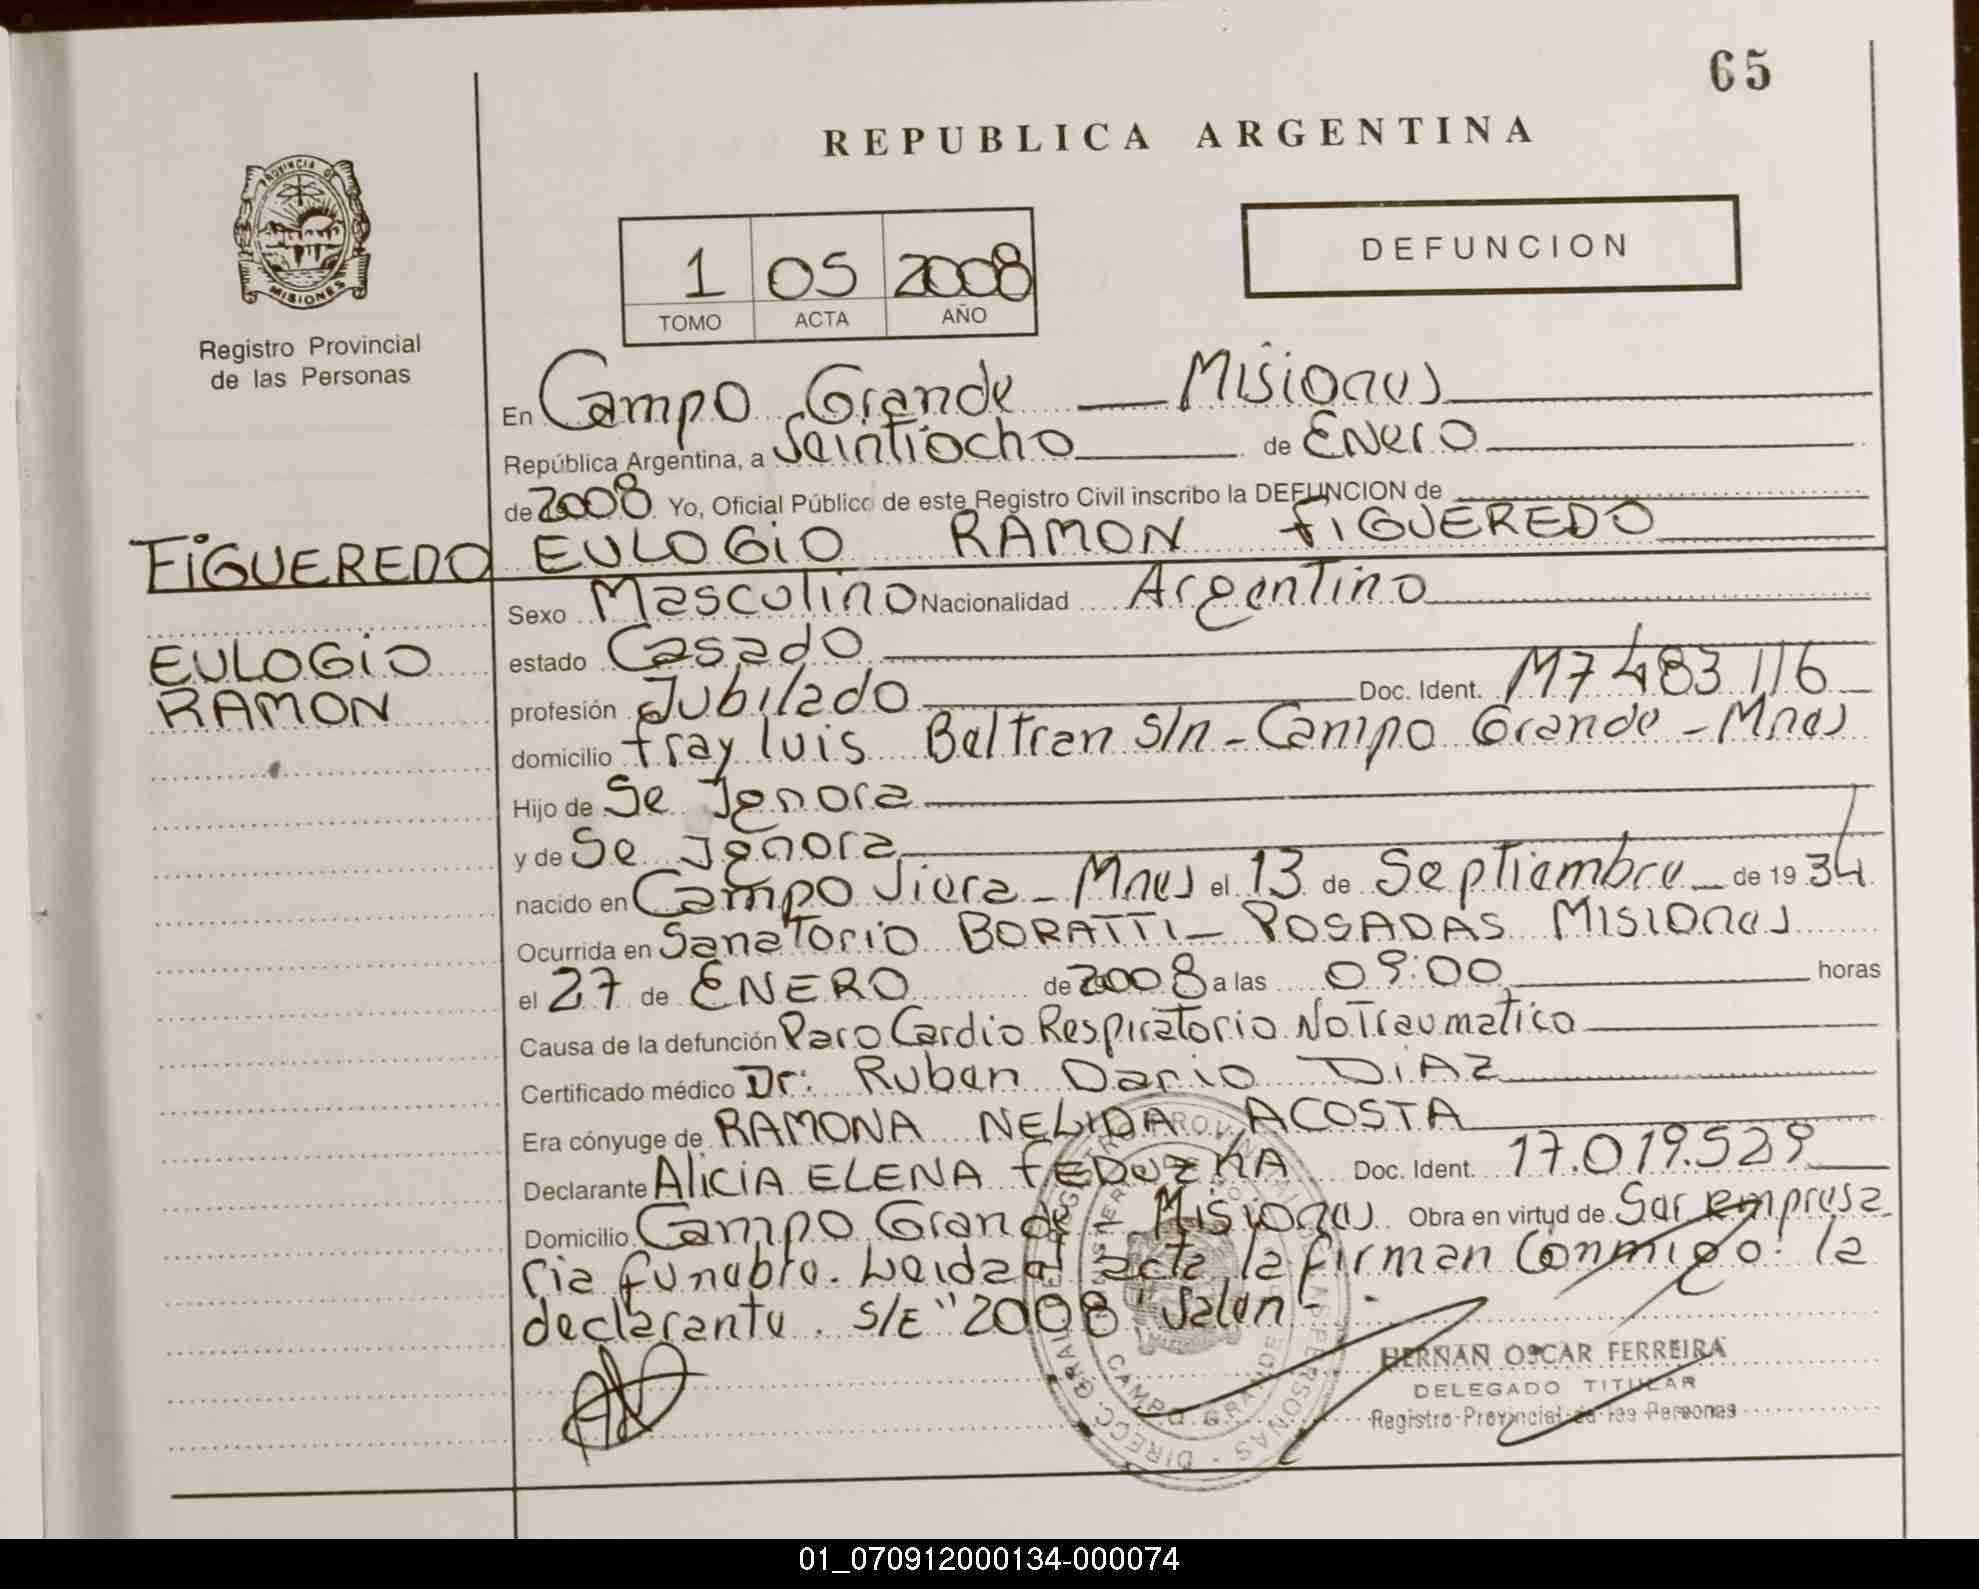 65
REPUBLICA ARGENTINA
PROVINCIA DE
MISIONES
Registro Provincial
de las Personas
1 05 2008
TOMO ACTA AÑO
DEFUNCION
En Campo Grande — Misiones
República Argentina, a Veintiocho de Enero
de 2008 Yo, Oficial Público de este Registro Civil inscribo la DEFUNCION de
FIGUEREDO EULOGIO RAMON FIGUEREDO
Sexo Masculino Nacionalidad Argentino
EULOGIO
RAMON
estado Casado
profesión Jubilado Doc. Ident. M7483116
domicilio fray luis Beltran s/n - Campo Grande - Mnes
Hijo de Se Ignora
y de Se Ignora
nacido en Campo Viera - Mnes el 13 de Septiembre de 1934
Ocurrida en Sanatorio BORATTI - POSADAS Misiones
el 27 de ENERO de 2008 a las 09:00 horas
Causa de la defunción Paro Cardio Respiratorio No Traumatico
Certificado médico Dr: Ruben Dario DIAZ
Era cónyuge de RAMONA NELIDA ACOSTA
Declarante ALICIA ELENA Doc. Ident. 17.019.529
Domicilio Campo Grande - Misiones Obra en virtud de Ser empresa
ria funebre. Leida el acta la firman Conmigo: la
declarante. s/E "2008" Valen -
CAMPO GRANDE
HERNAN OSCAR FERREIRA
DELEGADO TITULAR
Registro Provincial de las Personas
01_070912000134-000074